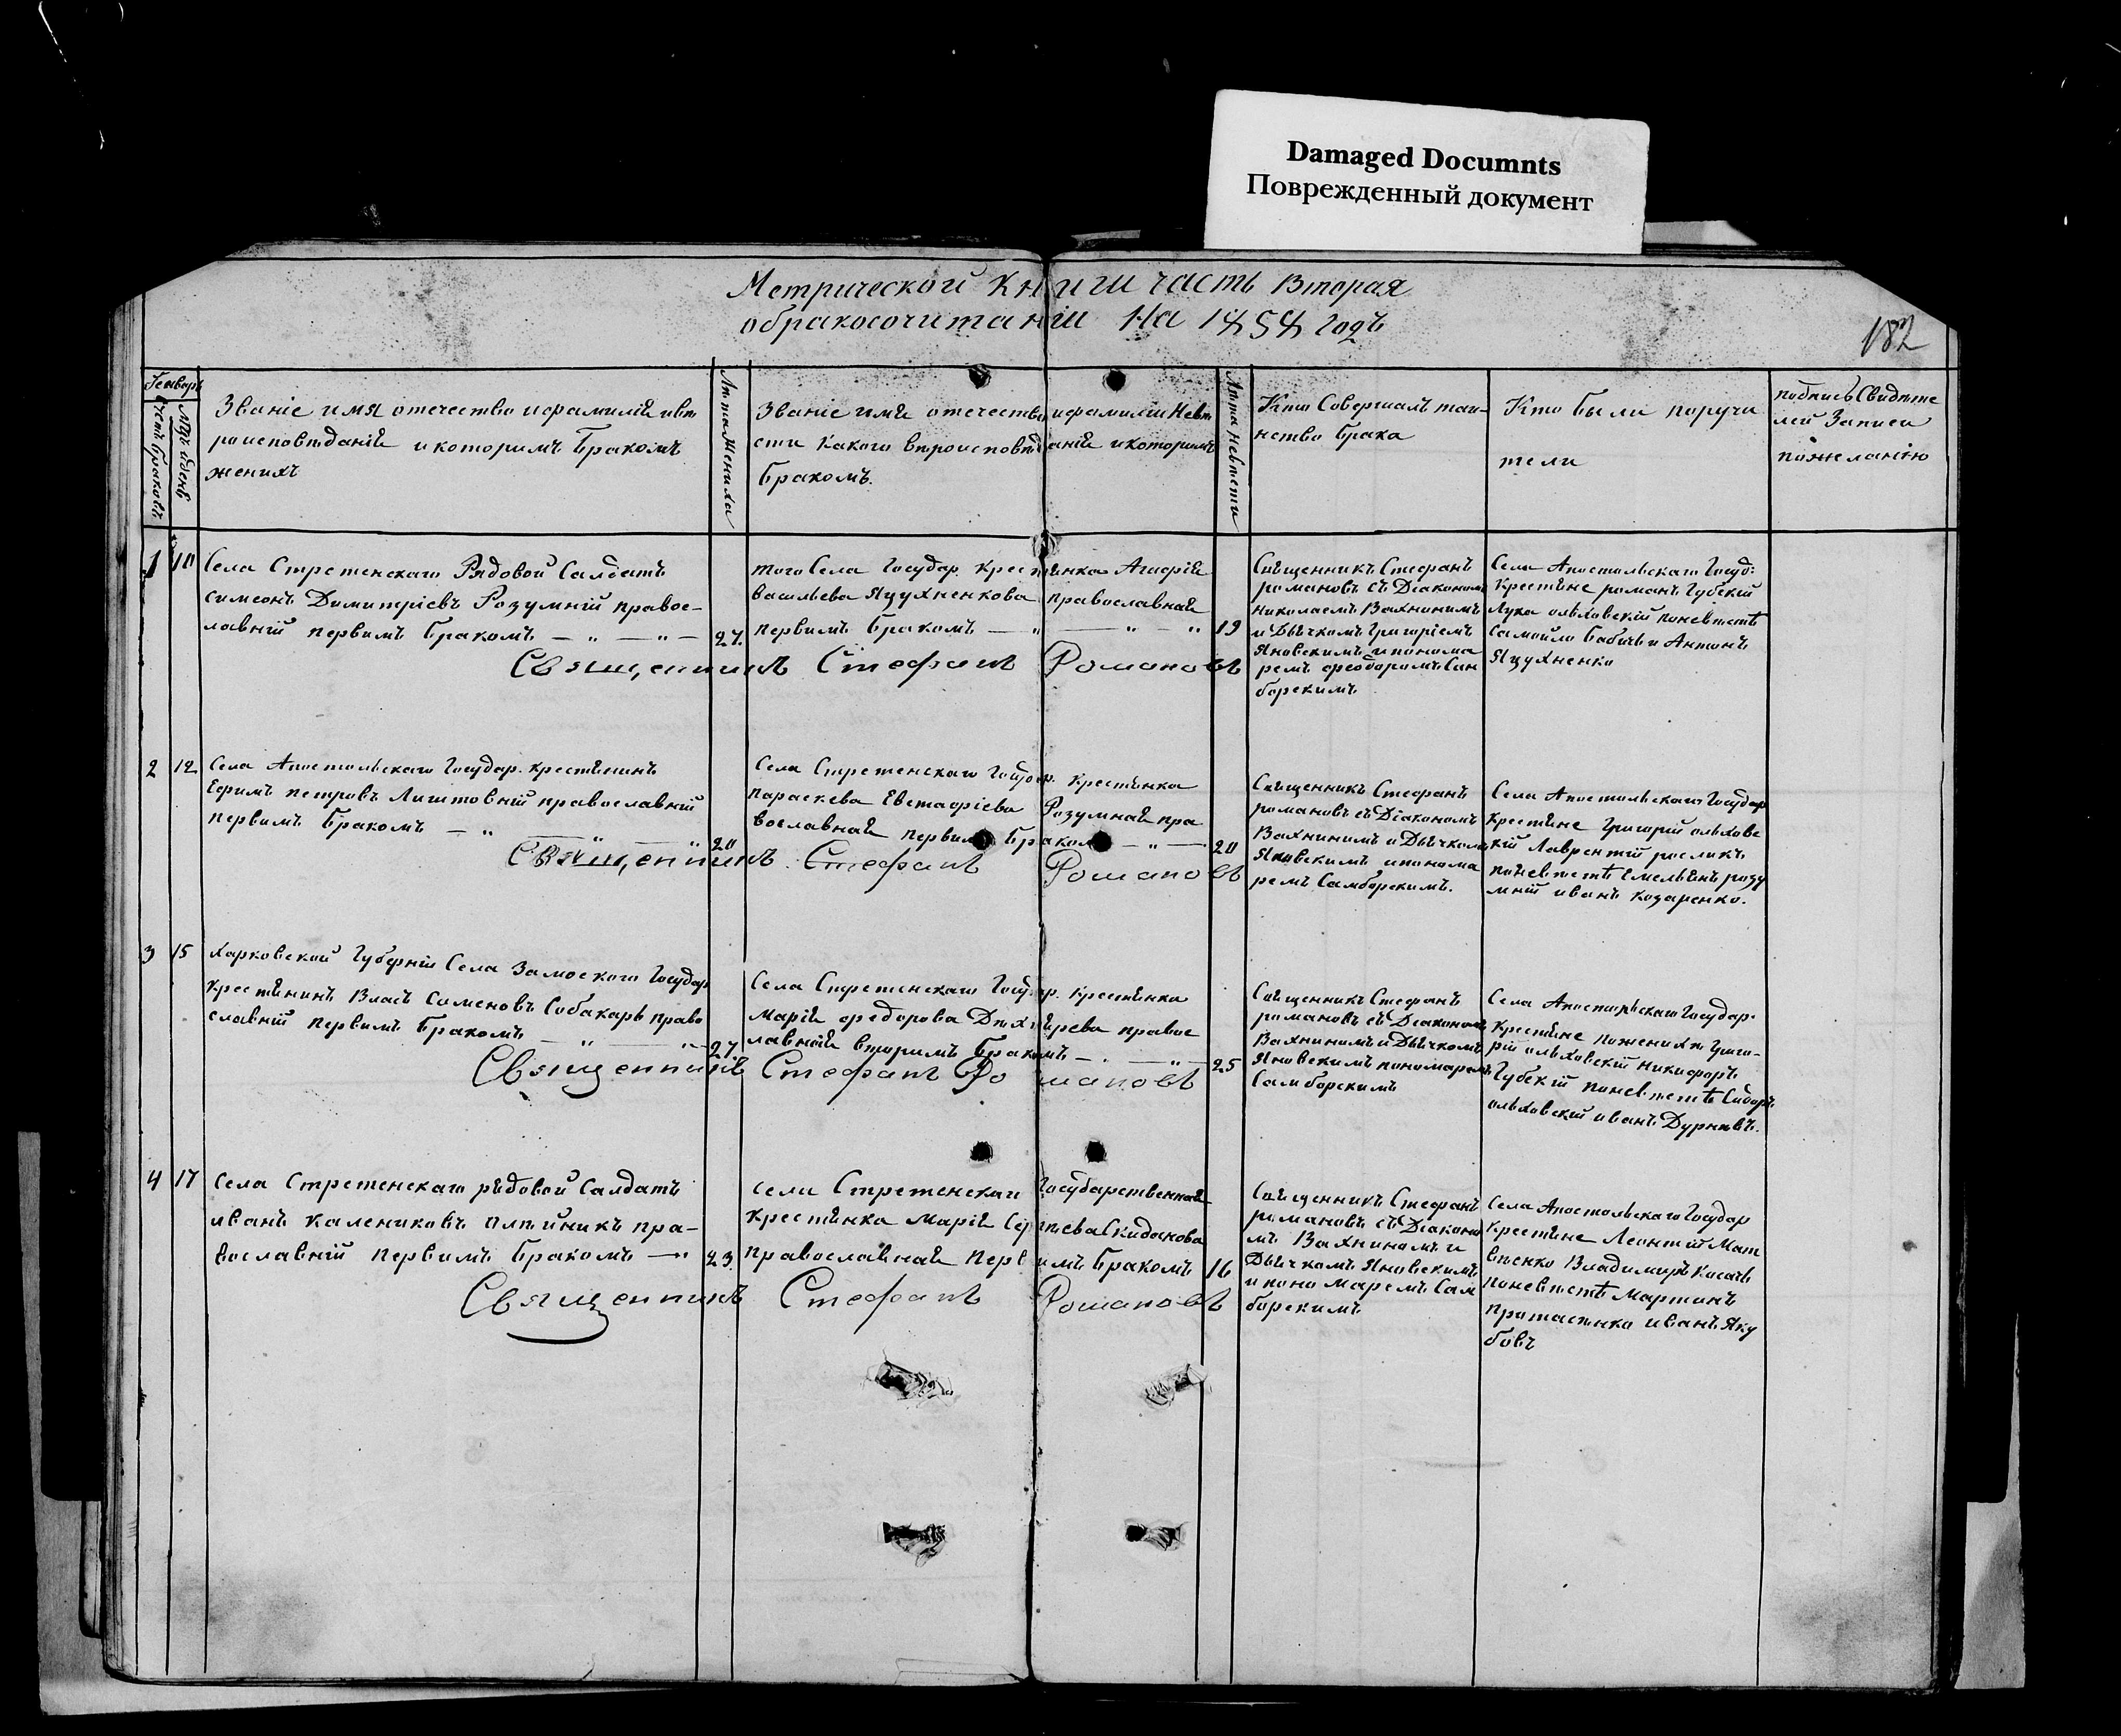 Damaged Documnts
Поврежденный документ
Метрической книги часть вторая
о бракосочитаніи на 1858 годъ
182
Генварь
Счетъ браковъ
Мць и день
Званіе имя отечество и фамилій и вѣ
роисповѣданій и которимъ бракомъ
женихъ
Лѣта жениха
Званіе имя отечество и фамилій невѣ
сти какого вѣроисповѣданій и которимъ
бракомъ.
Лѣта невѣсти
Кто совершалъ таи-
нство брака
Кто были поручи
тели
подпись свидѣте
лей записи
по желанію
1 10
Села Стретенскаго Рядовой Салдатъ
Симеонъ Димитріевъ Розумній правос-
лавній первимъ бракомъ
27.
того Села Государ. крестянка Агафія
Васильева Яцухненкова православная
первимъ бракомъ
19
Священникъ Стефанъ
романовъ съ Діакономъ
Николаемъ Вахнинимъ
и Дьячкомъ Григоріемъ
Яновскимъ и понома
ремъ феодоромъ Сам
борскимъ
Села Апостольскаго Госуд:
Крестяне романъ Губскій
Лука ольховскій по невѣстѣ
Самойло Бабичъ и Антонъ
Яцухненко
Священникъ Стефанъ Романовъ
2 12
Села Апостольскаго Государ. крестянинъ
Ефимъ петровъ Лиштовній православній
первимъ бракомъ
20
Села Стретенскаго Государ. крестянка
Параскева Евстафіева Розумная пра
вославная первимъ бракомъ
20
Священникъ Стефанъ
романовъ съ Діакономъ
Вахнинимъ и Дьячкомъ
Яновскимъ и понома
ремъ Самборскимъ.
Села Апостольскаго Государ
крестяне Григорій ольховс
кій Лаврентій росликъ
по невѣстѣ Емельянъ розу
мній иванъ козаренко.
Священникъ Стефанъ Романовъ
3 15
Харковской Губерній Села Замоского Государ
крестянинъ Власъ Сименовъ Собакаръ право
славній первимъ бракомъ
27.
Села Стретенскаго Государ. крестянка
Марія федорова правос
лавная вторимъ бракомъ
25
Священникъ Стефанъ
романовъ съ Діакономъ
Вахнинимъ и Дьячкомъ
Яновскимъ пономаремъ
Самборскимъ
Села Апостольскаго Государ.
крестяне по женихѣ Григо-
рій ольховскій никифоръ
Губскій по невѣстѣ Сидоръ
ольховскій иванъ Дурневъ.
Священникъ Стефанъ Романовъ
4 17
Села Стретенскаго рядовой Салдатъ
иванъ Калениковъ олѣйникъ пра-
вославній первимъ бракомъ
23.
села Стретенскаго Государственная
крестянка Марія
православная первимъ бракомъ
16
Священникъ Стефанъ
романовъ съ Діаконо
мъ Вахнинимъ и
Дьячкомъ Яновскимъ
и пономаремъ Сам
борскимъ
Села Апостольскаго Государ
крестяне Леонтій Мат
віенко Владимиръ Косачъ
по невѣстѣ Мартинъ
протасенко иванъ Яку
бовъ
Священникъ Стефанъ Романовъ